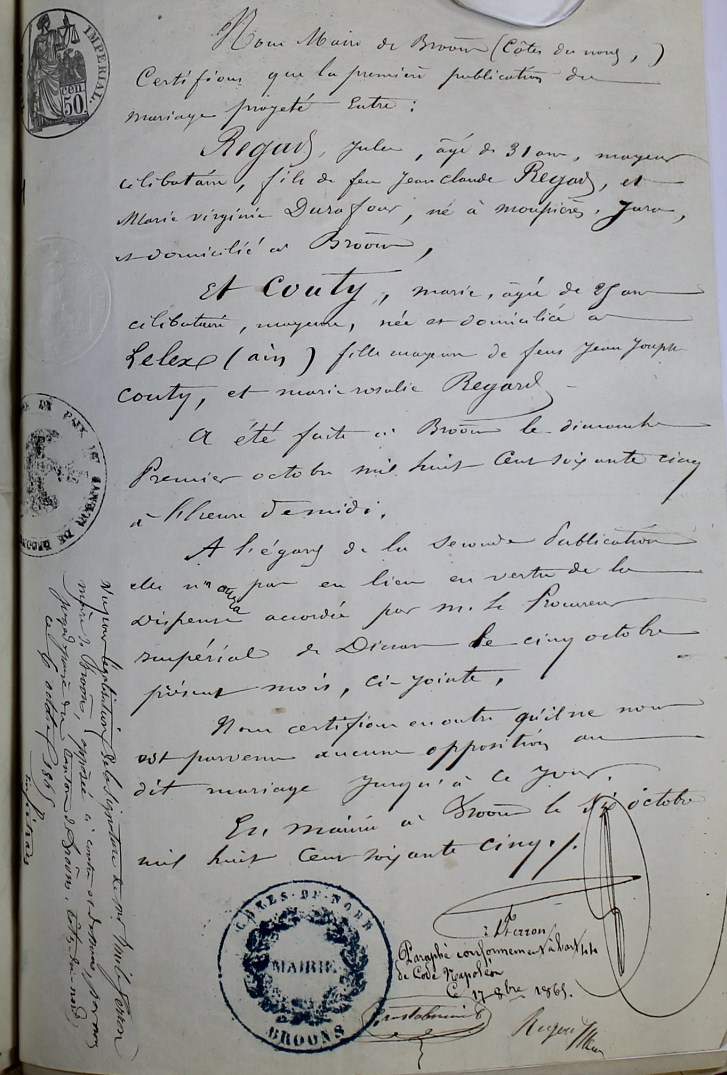 IMPERIAL.
cen.
50
Nous Maire de Broons (Côtes du nord,)
Certifions que la première publication du
mariage projeté Entre :
Regard, Jules, âgé de 31 ans, majeur
célibataire, fils de feu Jean claude Regard, et
Marie virginie Durafour, né à moupières, Jura,
et domicilié à Broons,
Et Couty, marie, âgée de 25 ans
célibataire, majeure, née et domiciliée à
Lelex (ain) fille majeure de feus Jean Joseph
Couty, et marie rosalie Regard
A été faite à Broons le dimanche
Premier octobre mil huit Cent soixante cinq
à l'heure de midi.
A l'égard de la seconde Publication
elle n'aura pas eu lieu en vertu de la
dispense accordée par M. le Procureur
impérial de Dinan le cinq octobre
présent mois, ci-jointe,
Nous certifions en outre qu'il ne nous
est parvenu aucune opposition au
dit mariage jusqu'à ce jour.
En mairie à Broons le octobre
mil huit Cent soixante cinq./.
Ferron
Paraphé conformement à l'art 44
de Code Napoléon
Ce 17 8bre 1865.
CÔTES-DU-NORD
MAIRIE
BROONS
DE PAIX
CANTON DE BROONS
Vu pour légalisation de la signature de Mr Ferron
maire de Broons, apposée ci contre
canton de Broons, Côtes du nord
octobre 1865